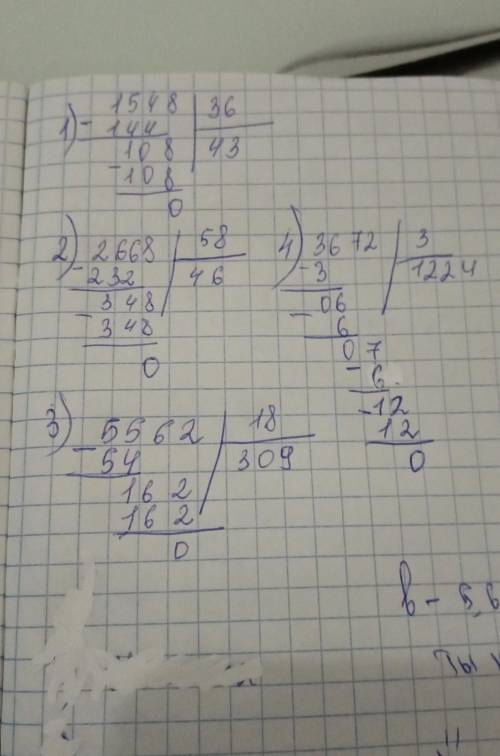 1) - 1548 | 36
144 | 43
- 108
108
0
2) - 2668 | 58
232 | 46
- 348
348
0
4) - 3672 | 3
3 | 1224
- 06
6
07
- 6
- 12
12
0
3) - 5562 | 18
54 | 309
162
162
0
в - 5,6